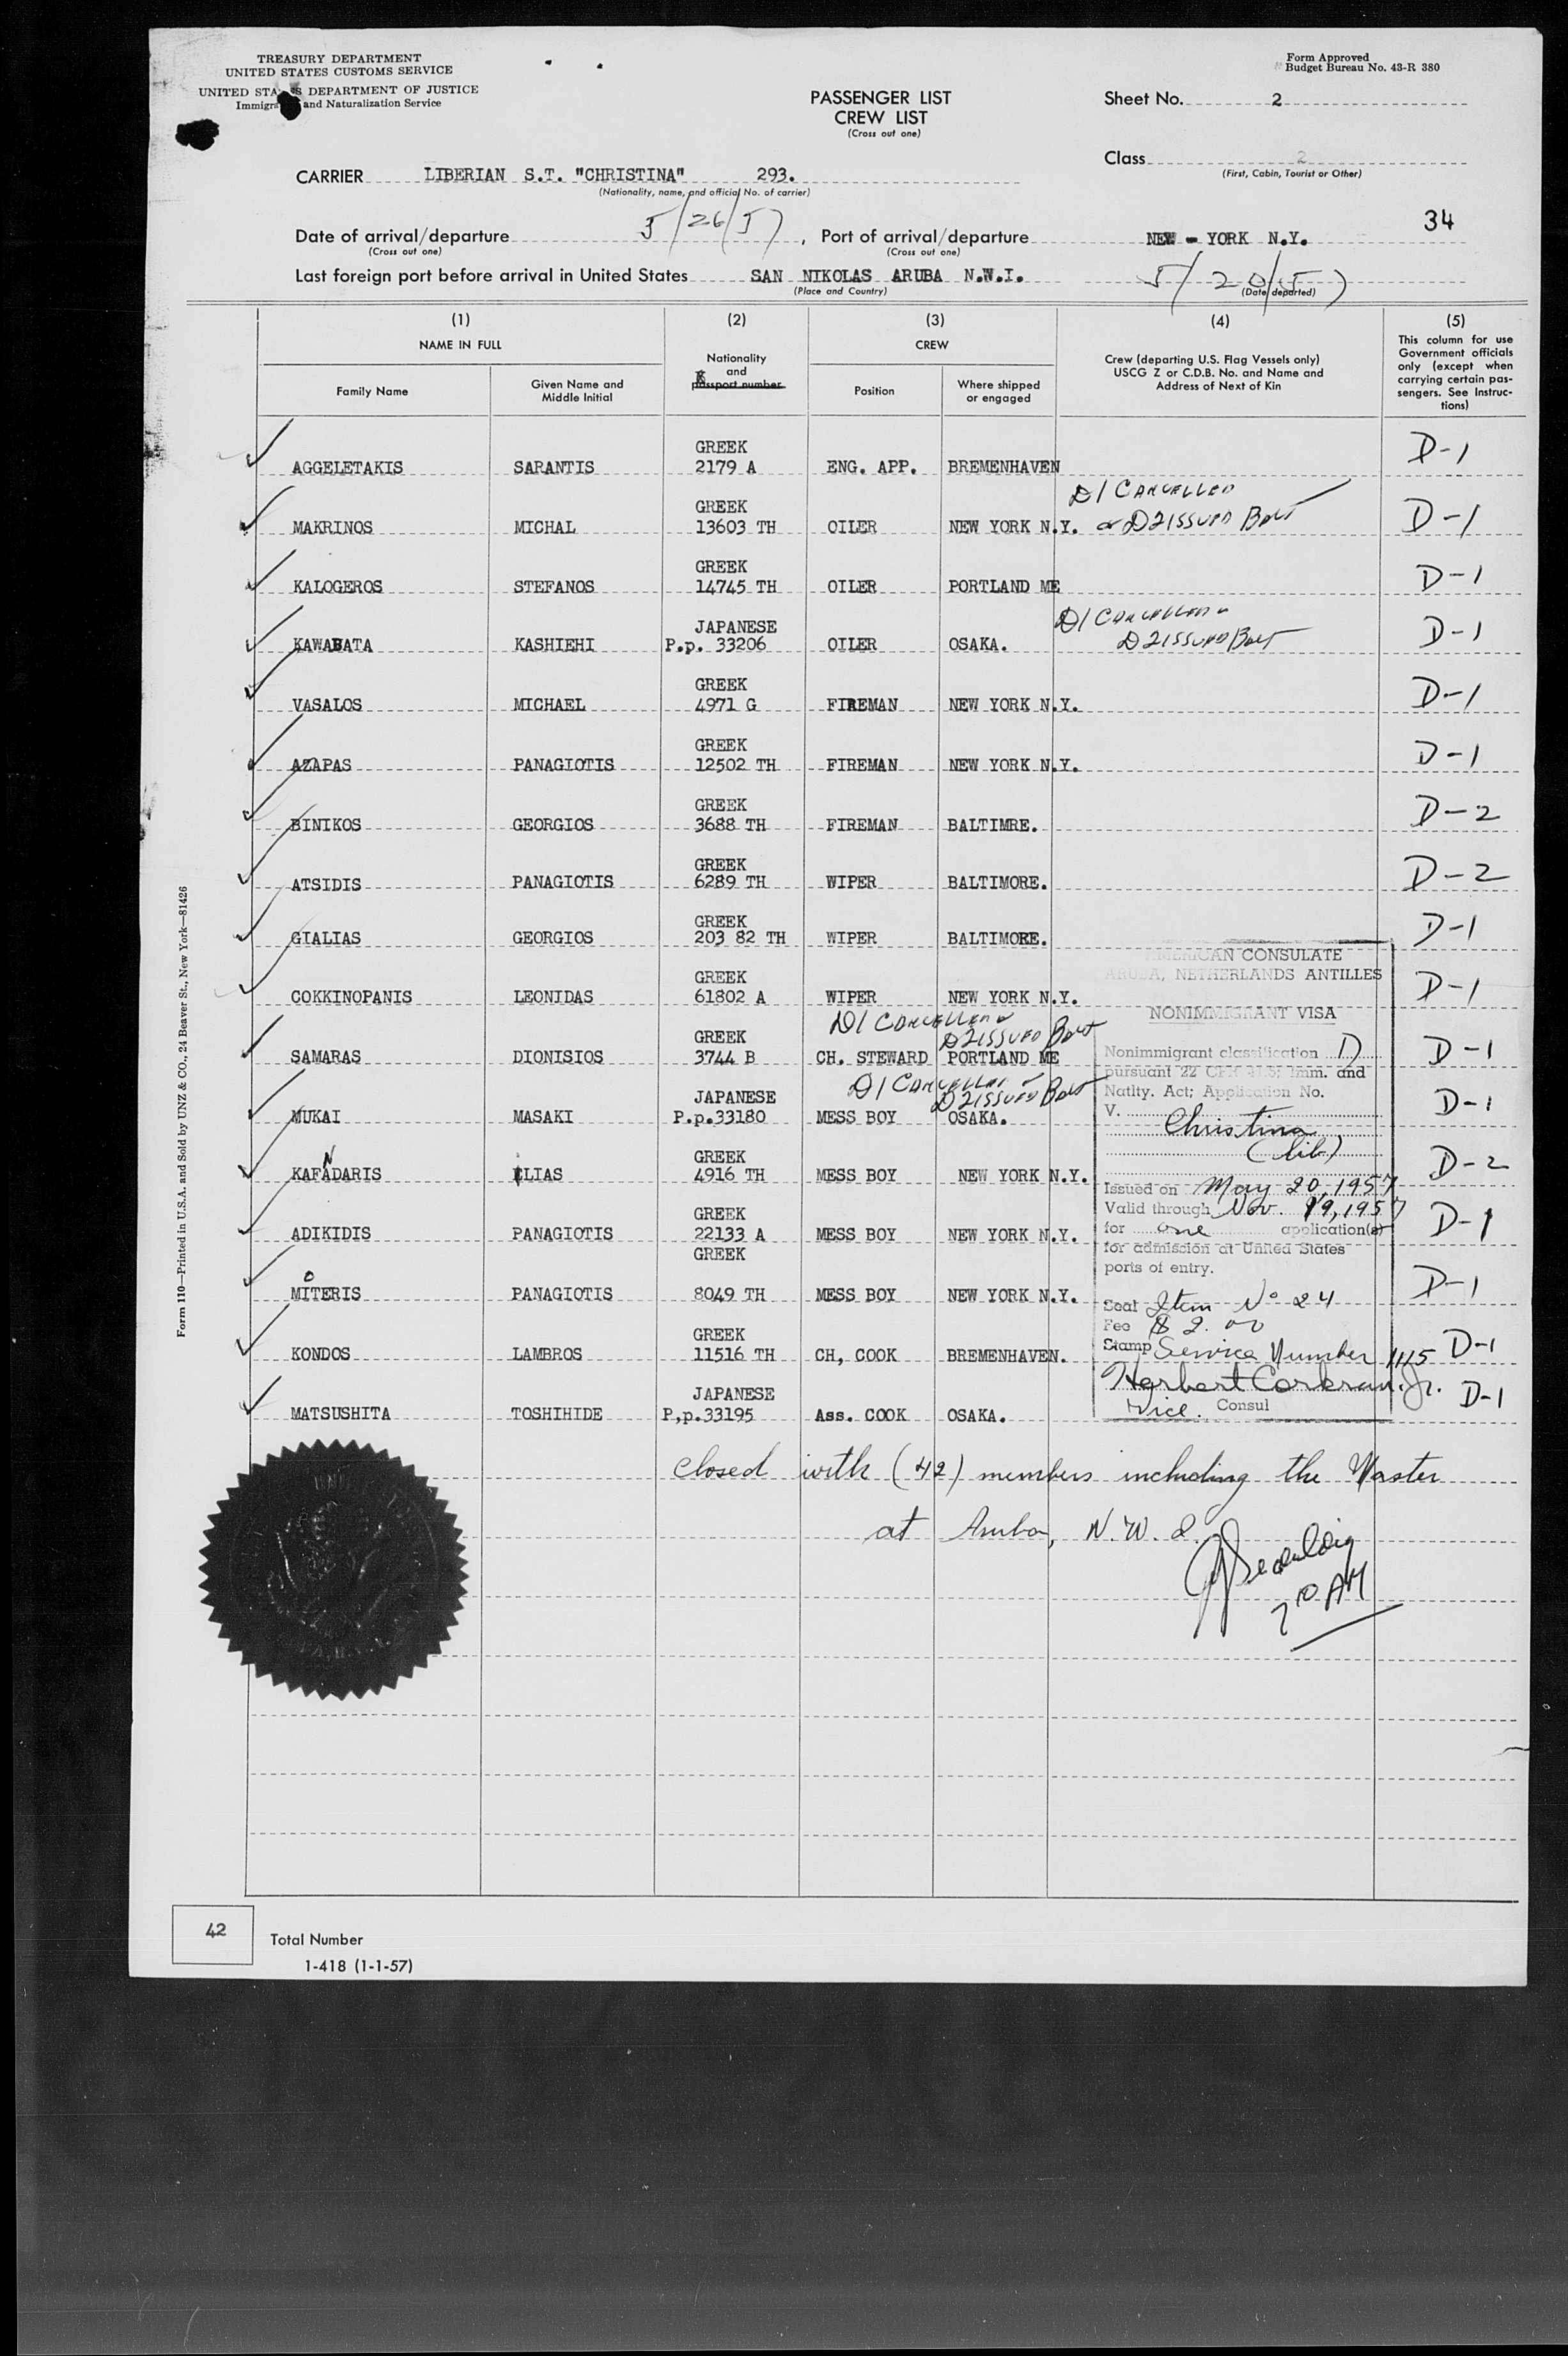 TREASURY DEPARTMENT
UNITED STATES CUSTOMS SERVICE
UNITED STATES DEPARTMENT OF JUSTICE
Immigra and Naturalization Service
Form Approved
Budget Bureau No. 43-R 380
PASSENGER LIST
CREW LIST
(Cross out one)
Sheet No. 2
Class 2
(First, Cabin, Tourist or Other)
CARRIER LIBERIAN S.T. "CHRISTINA" 293.
(Nationality, name, and official No. of carrier)
34
Date of arrival/departure 5/26/57, Port of arrival/departure NEW - YORK N.Y.
(Cross out one) (Cross out one)
Last foreign port before arrival in United States SAN NIKOLAS ARUBA N.W.I. 5/20/57
(Place and Country) (Date departed)
(1) (2) (3) (4) (5)
NAME IN FULL
Family Name
Given Name and Middle Initial
Nationality and passport number
CREW
Position
Where shipped or engaged
Crew (departing U.S. Flag Vessels only)
USCG Z or C.D.B. No. and Name and
Address of Next of Kin
This column for use
Government officials
only (except when
carrying certain pas-
sengers. See Instruc-
tions)
GREEK
AGGELETAKIS SARANTIS 2179 A ENG. APP. BREMENHAVEN D-1
GREEK D1 CANCELLED
MAKRINOS MICHAL 13603 TH OILER NEW YORK N.Y. D2 ISSUED D-1
GREEK
KALOGEROS STEFANOS 14745 TH OILER PORTLAND ME D-1
JAPANESE D1 CANCELLED
KAWABATA KASHIEHI P.p. 33206 OILER OSAKA. D2 ISSUED D-1
GREEK
VASALOS MICHAEL 4971 G FIREMAN NEW YORK N.Y. D-1
GREEK
AZAPAS PANAGIOTIS 12502 TH FIREMAN NEW YORK N.Y. D-1
GREEK
BINIKOS GEORGIOS 3688 TH FIREMAN BALTIMRE. D-2
GREEK
ATSIDIS PANAGIOTIS 6289 TH WIPER BALTIMORE. D-2
GREEK
GIALIAS GEORGIOS 203 82 TH WIPER BALTIMORE. D-1
GREEK
COKKINOPANIS LEONIDAS 61802 A WIPER NEW YORK N.Y. D-1
D1 CANCELLED
GREEK D2 ISSUED
SAMARAS DIONISIOS 3744 B CH. STEWARD PORTLAND ME D-1
D1 CANCELLED
JAPANESE D2 ISSUED
MUKAI MASAKI P.p.33180 MESS BOY OSAKA. D-1
N GREEK
KAFADARIS ELIAS 4916 TH MESS BOY NEW YORK N.Y. D-2
GREEK
ADIKIDIS PANAGIOTIS 22133 A MESS BOY NEW YORK N.Y. D-1
GREEK
O
MITERIS PANAGIOTIS 8049 TH MESS BOY NEW YORK N.Y. D-1
GREEK
KONDOS LAMBROS 11516 TH CH, COOK BREMENHAVEN. D-1
JAPANESE
MATSUSHITA TOSHIHIDE P,p.33195 Ass. COOK OSAKA. D-1
AMERICAN CONSULATE
ARUBA, NETHERLANDS ANTILLES
NONIMMIGRANT VISA
Nonimmigrant classification D
pursuant 22 CFR Imm. and
Natlty. Act; Application No.
V.
Christina
(Lib)
Issued on May 20, 1957
Valid through Nov. 19, 1957
for one application(s)
for admission at United States
ports of entry.
Seal Item No 24
Fee $ 2.00
Stamp Service Number 1115
Herbert Corkran, Jr.
Vice Consul
closed with (42) members including the Master
at Aruba, N.W.I.
42
Total Number
1-418 (1-1-57)
Form 110—Printed in U.S.A. and Sold by UNZ & CO., 24 Beaver St., New York—81426